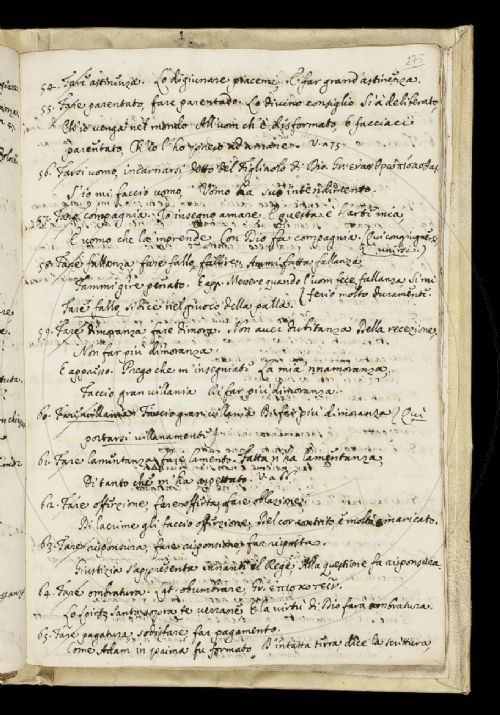 275
54. Fare astinenza. Lo digiunare piacemi, E far grand astinenza.
55. Fare parentato, fare parentado. Lo Divino consiglio Si à deliberato
Ch'io venga nel mondo All'uom ch'è disformato, e facciaci
parentato, Ch'io l'ho preso ad amare. V. a 75
56. Farsi uomo, incarnarsi detto del Figliuolo di Dio. Gr.
S'io mi faccio uomo, Uomo ha suo intendimento.
57. Fare compagnia. Io insegno amare E questa è l'arte mia
E uomo che la mprende Con Dio fa compagnia. Qui congiugnersi
unirsi.
58. Fare fallanza fare fallo, fallire. Ammi fatta fallanza,
E app. Messere quando l'uom fece fallanza Si mi
ferio molto duramente.
Fare fallo, si dice nel giuoco della palla.
59. Fare dimoranza fare dimora. Non auci dubitanza Della recezione,
Non far più dimoranza.
E appresso. Prego che m'insegniati La mia nnamoranza,
Faccio gran villania Di far più dimoranza.
60. Fare villania. Faccio gran villania Di far più dimoranza. Qui
portarsi villanamente.
61. Fare lamentanza, fare lamento. Fatta n'ha lamentanza
Di tanto che m'ha aspettato. V. a 66
62. Fare offerzione, fare offerta, fare oblazione.
Di lacrime gli faccio offerzione, Del cor contrito è molto amaricato.
63. Fare risponsura, fare risponsione far risposta.
Giustizia s'appresenta innanti el Rege, Alla questione fa risponsura.
64. Fare ombratura. Lat. obumbrare Gr.
Lo Spirito Santo sopra te verrane E la virtù di Dio farà ombratura.
65. Fare pagatura sodisfare far pagamento.
Come Adam in prima fu formato D'intatta terra dice la scrittura,